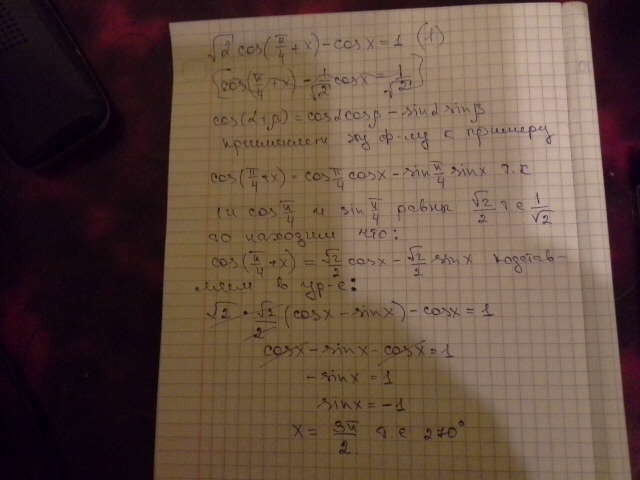 √2 cos(π/4 + x) - cosx = 1 (1)
{cos(π/4 + x) - 1/√2 cosx = 1/√2}
cos(α+β) = cosα cosβ - sinα sinβ
применяем эту ф-лу к примеру
cos(π/4 + x) = cos π/4 cosx - sin π/4 sinx т.к
и cos π/4 и sin π/4 равны √2/2 т е 1/√2
то находим что:
cos(π/4 + x) = √2/2 cosx - √2/2 sinx подстав-
ляем в ур-е:
√2 · √2/2 (cosx - sinx) - cosx = 1
cosx - sinx - cosx = 1
- sinx = 1
sinx = -1
x = 3π/2 т.е 270°